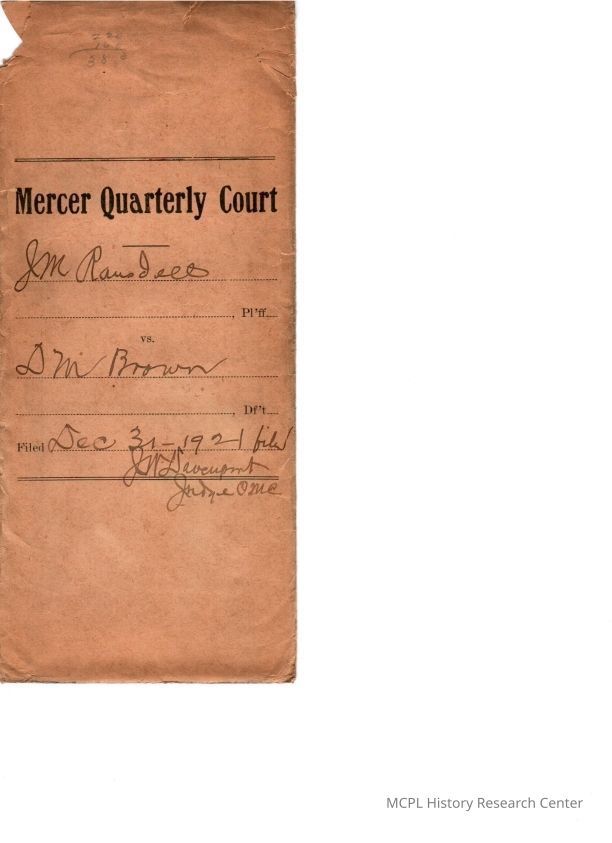 Mercer Quarterly Court
J M Ransdell
, Pl'ff
vs.
D M Brown
, Df't
Filed Dec 31-1921 file
J W Davenport
Judge QMC
MCPL History Research Center